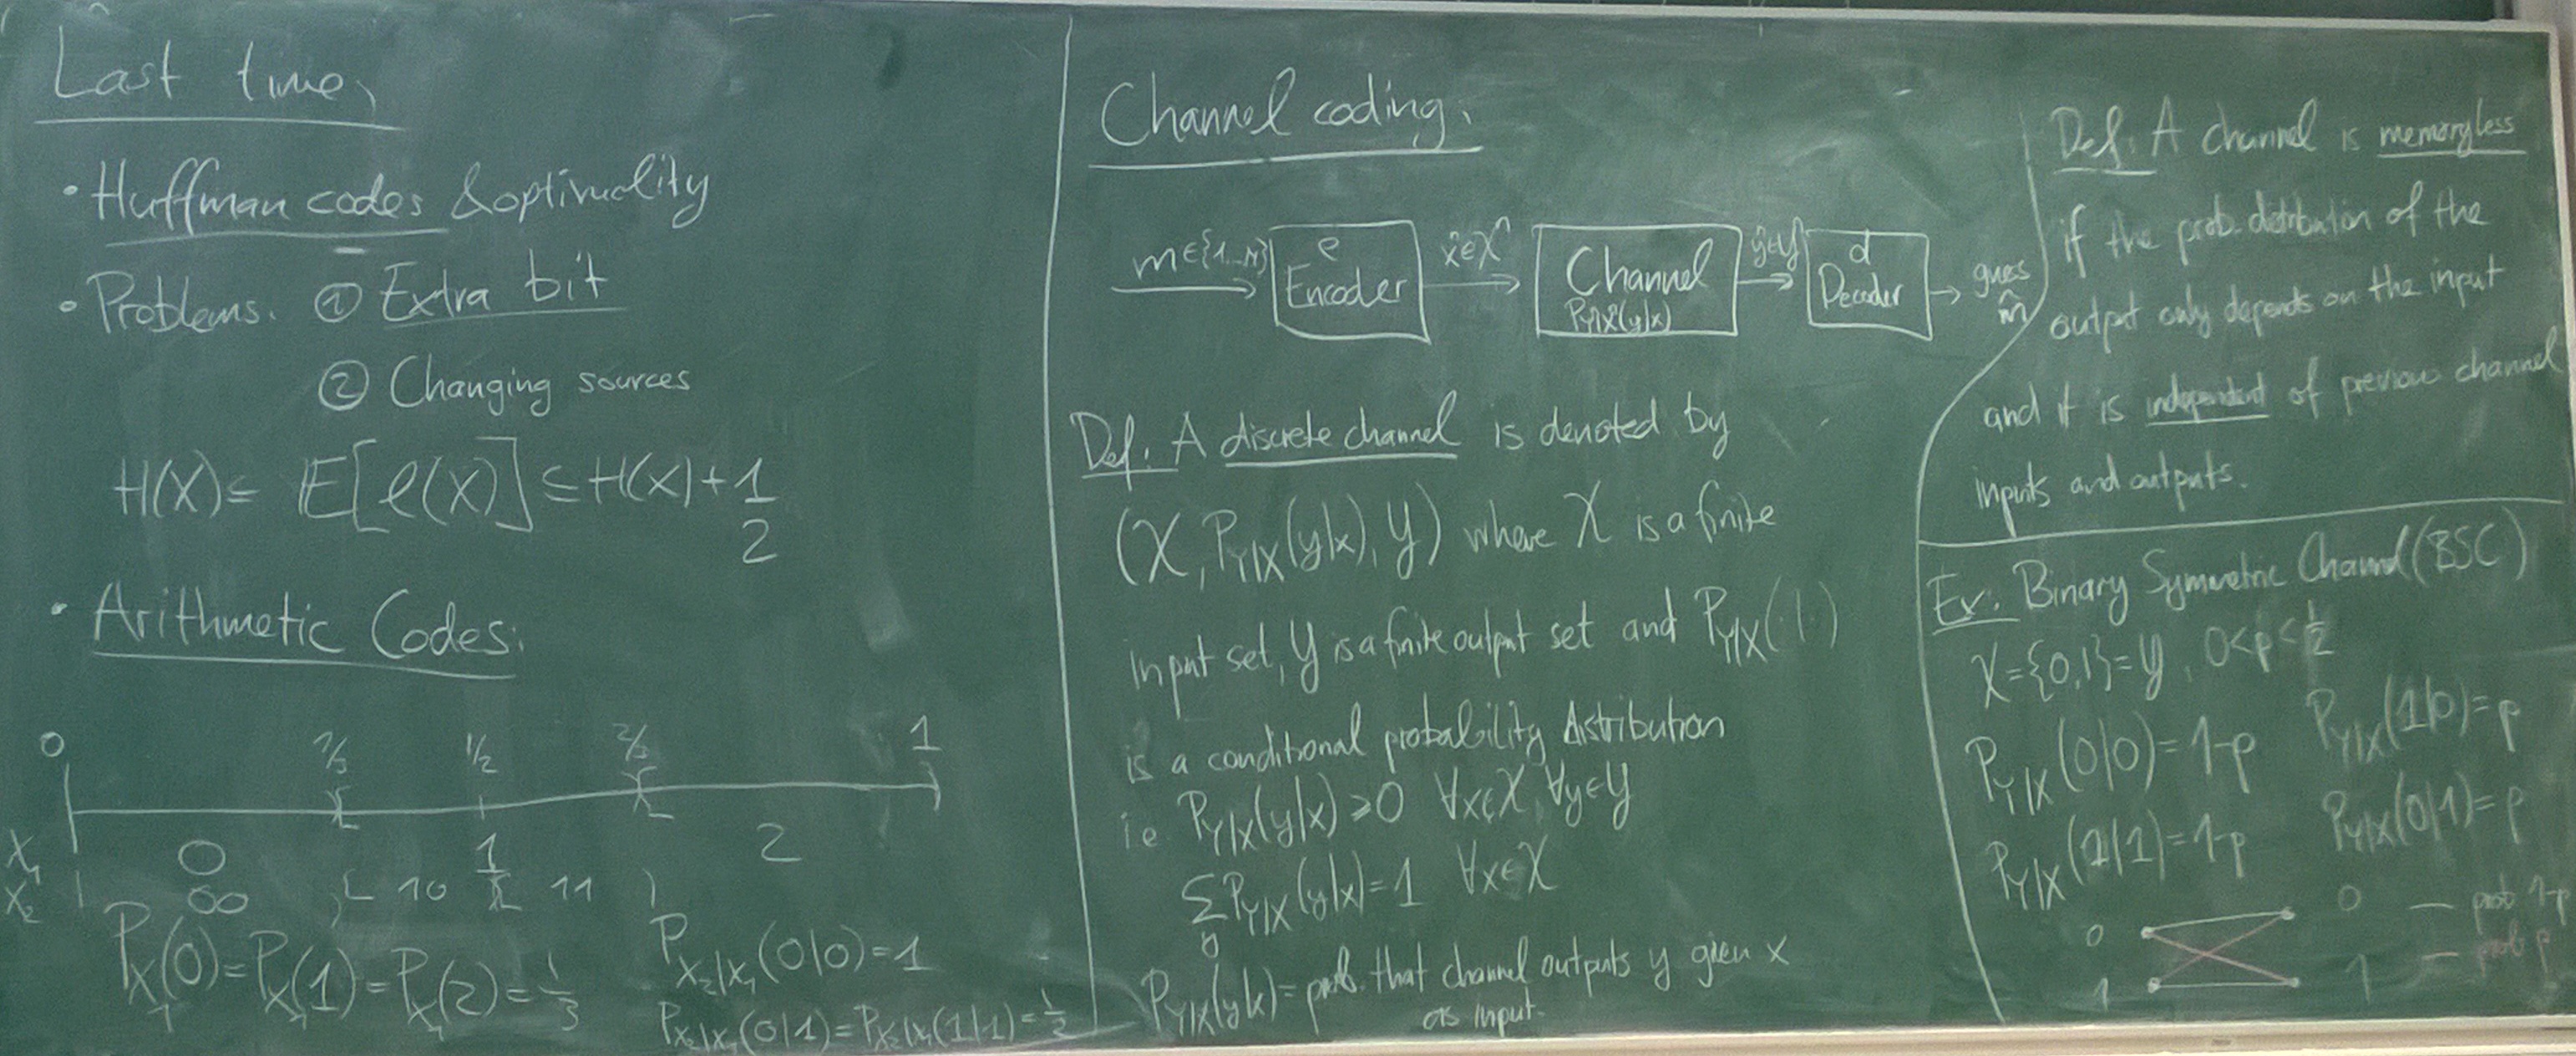 Last time,
• Huffman codes & optimality
• Problems. ① Extra bit
② Changing sources
H(X) ≤ E[ℓ(X)] ≤ H(X) + 1
2
• Arithmetic Codes.
0 1/3 1/2 2/3 1
X₁ 0 1 2
X₂ 00 ) [ 10 ) [ 11 )
P_{X₁}(0) = P_{X₁}(1) = P_{X₁}(2) = 1/3
P_{X₂|X₁}(0|0) = 1
P_{X₂|X₁}(0|1) = P_{X₂|X₁}(1|1) = 1/2
Channel coding.
m∈{1...M} e Encoder Channel P_{Y|X}(y|x) d Decoder guess m̂
Def. A discrete channel is denoted by
(𝒳, P_{Y|X}(y|x), 𝒴) where 𝒳 is a finite
input set, 𝒴 is a finite output set and P_{Y|X}(·|·)
is a conditional probability distribution
i.e P_{Y|X}(y|x) ≥ 0 ∀x∈𝒳, ∀y∈𝒴
∑_y P_{Y|X}(y|x) = 1 ∀x∈𝒳
P_{Y|X}(y|x) = prob. that channel outputs y given x
as input.
Def. A channel is memoryless
if the prob. distribution of the
output only depends on the input
and it is independent of previous channel
inputs and outputs.
Ex. Binary Symmetric Channel (BSC)
𝒳={0,1}=𝒴, 0<p<1/2
P_{Y|X}(0|0) = 1-p P_{Y|X}(1|0) = p
P_{Y|X}(1|1) = 1-p P_{Y|X}(0|1) = p
0 0 — prob 1-p
1 1 — prob p